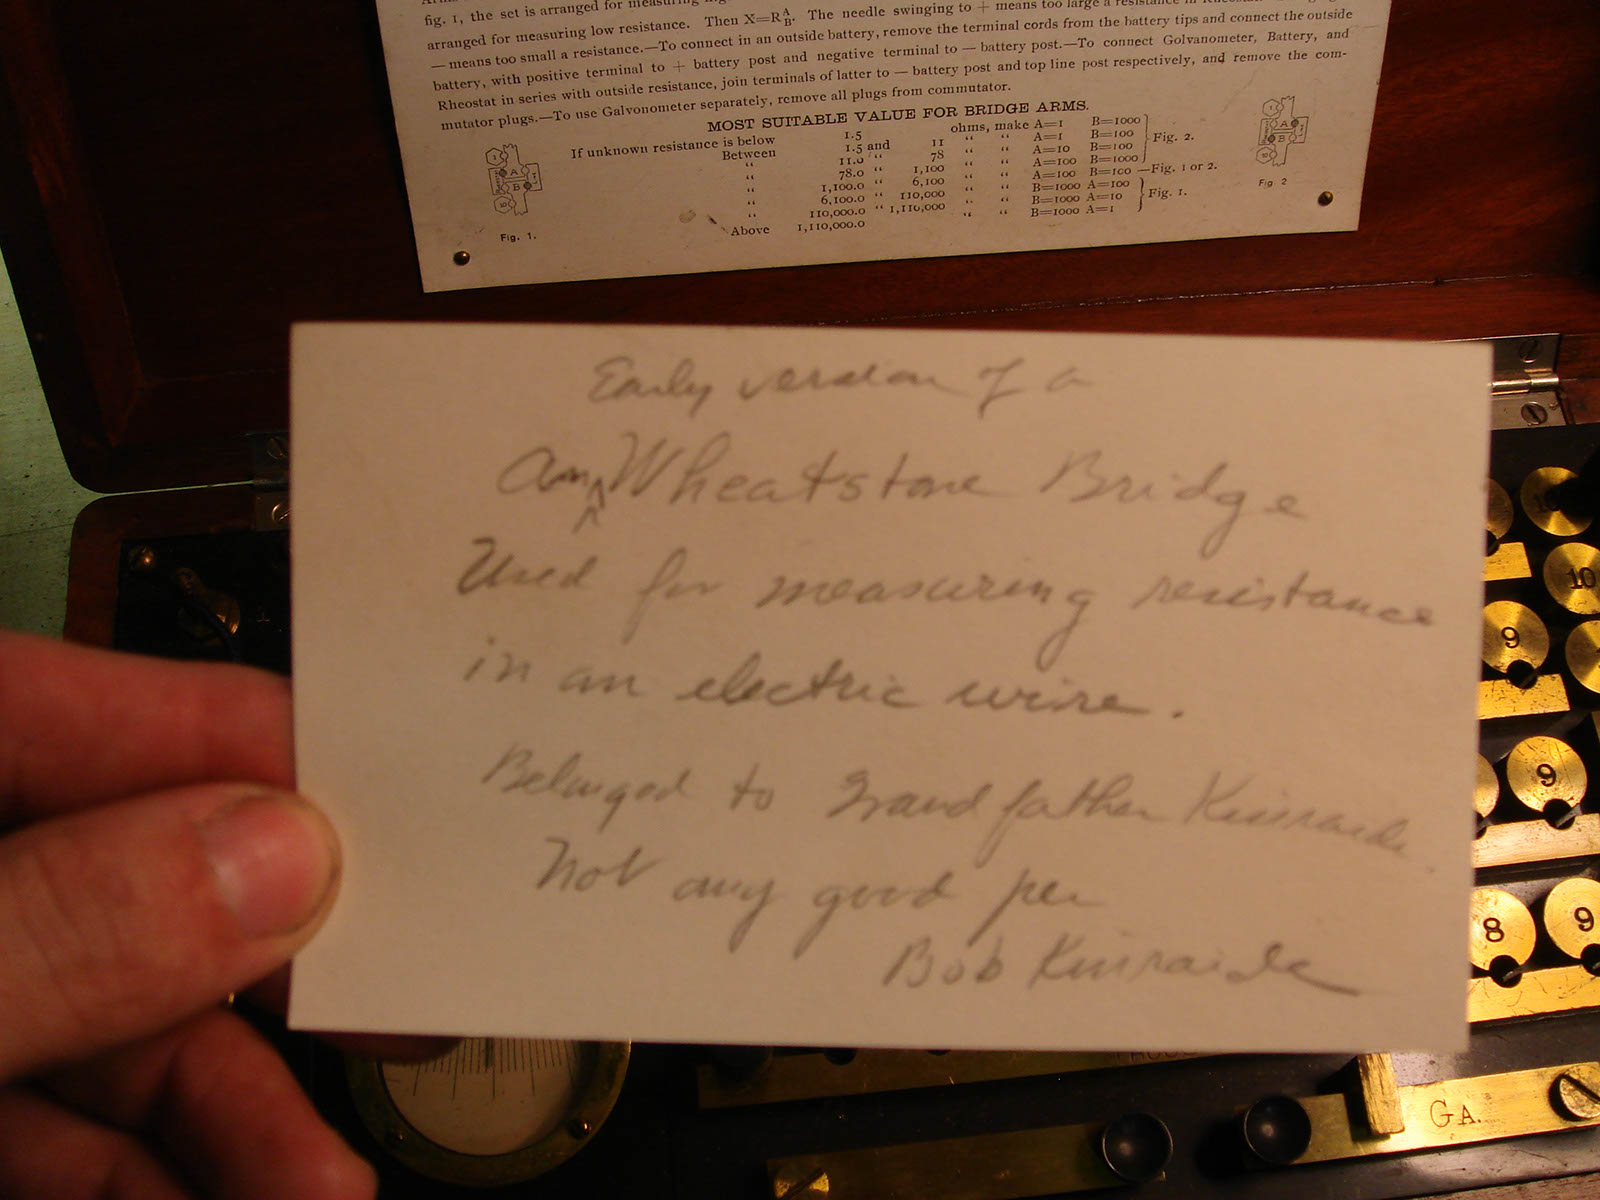 fig. 1, the set is arranged for measuring
arranged for measuring low resistance. Then X=R A/B. The needle swinging to + means too large a resistance in
— means too small a resistance.—To connect in an outside battery, remove the terminal cords from the battery tips and connect the outside
battery, with positive terminal to + battery post and negative terminal to — battery post.—To connect Golvanometer, Battery, and
Rheostat in series with outside resistance, join terminals of latter to — battery post and top line post respectively, and remove the com-
mutator plugs.—To use Galvonometer separately, remove all plugs from commutator.
MOST SUITABLE VALUE FOR BRIDGE ARMS.
If unknown resistance is below 1.5 ohms, make A=1 B=1000
Between 1.5 and 11 " " A=1 B=100
" 11.0 " 78 " " A=10 B=100
" 78.0 " 1,100 " " A=100 B=1000
Fig. 2.
" 1,100.0 " 6,100 " " A=100 B=100 —Fig. 1 or 2.
" 6,100.0 " 110,000 " " B=1000 A=100
" 110,000.0 " 1,110,000 " " B=1000 A=10
Above 1,110,000.0 " " B=1000 A=1
Fig. 1.
1
A
B
10
Fig. 1.
1
A
B
10
Fig 2
Early version of a
Am ^ Wheatstone Bridge
Used for measuring resistance
in an electric wire.
Belonged to Grandfather Kinraide.
Not any good per
Bob Kinraide
10
10
9
9
8
9
GA.